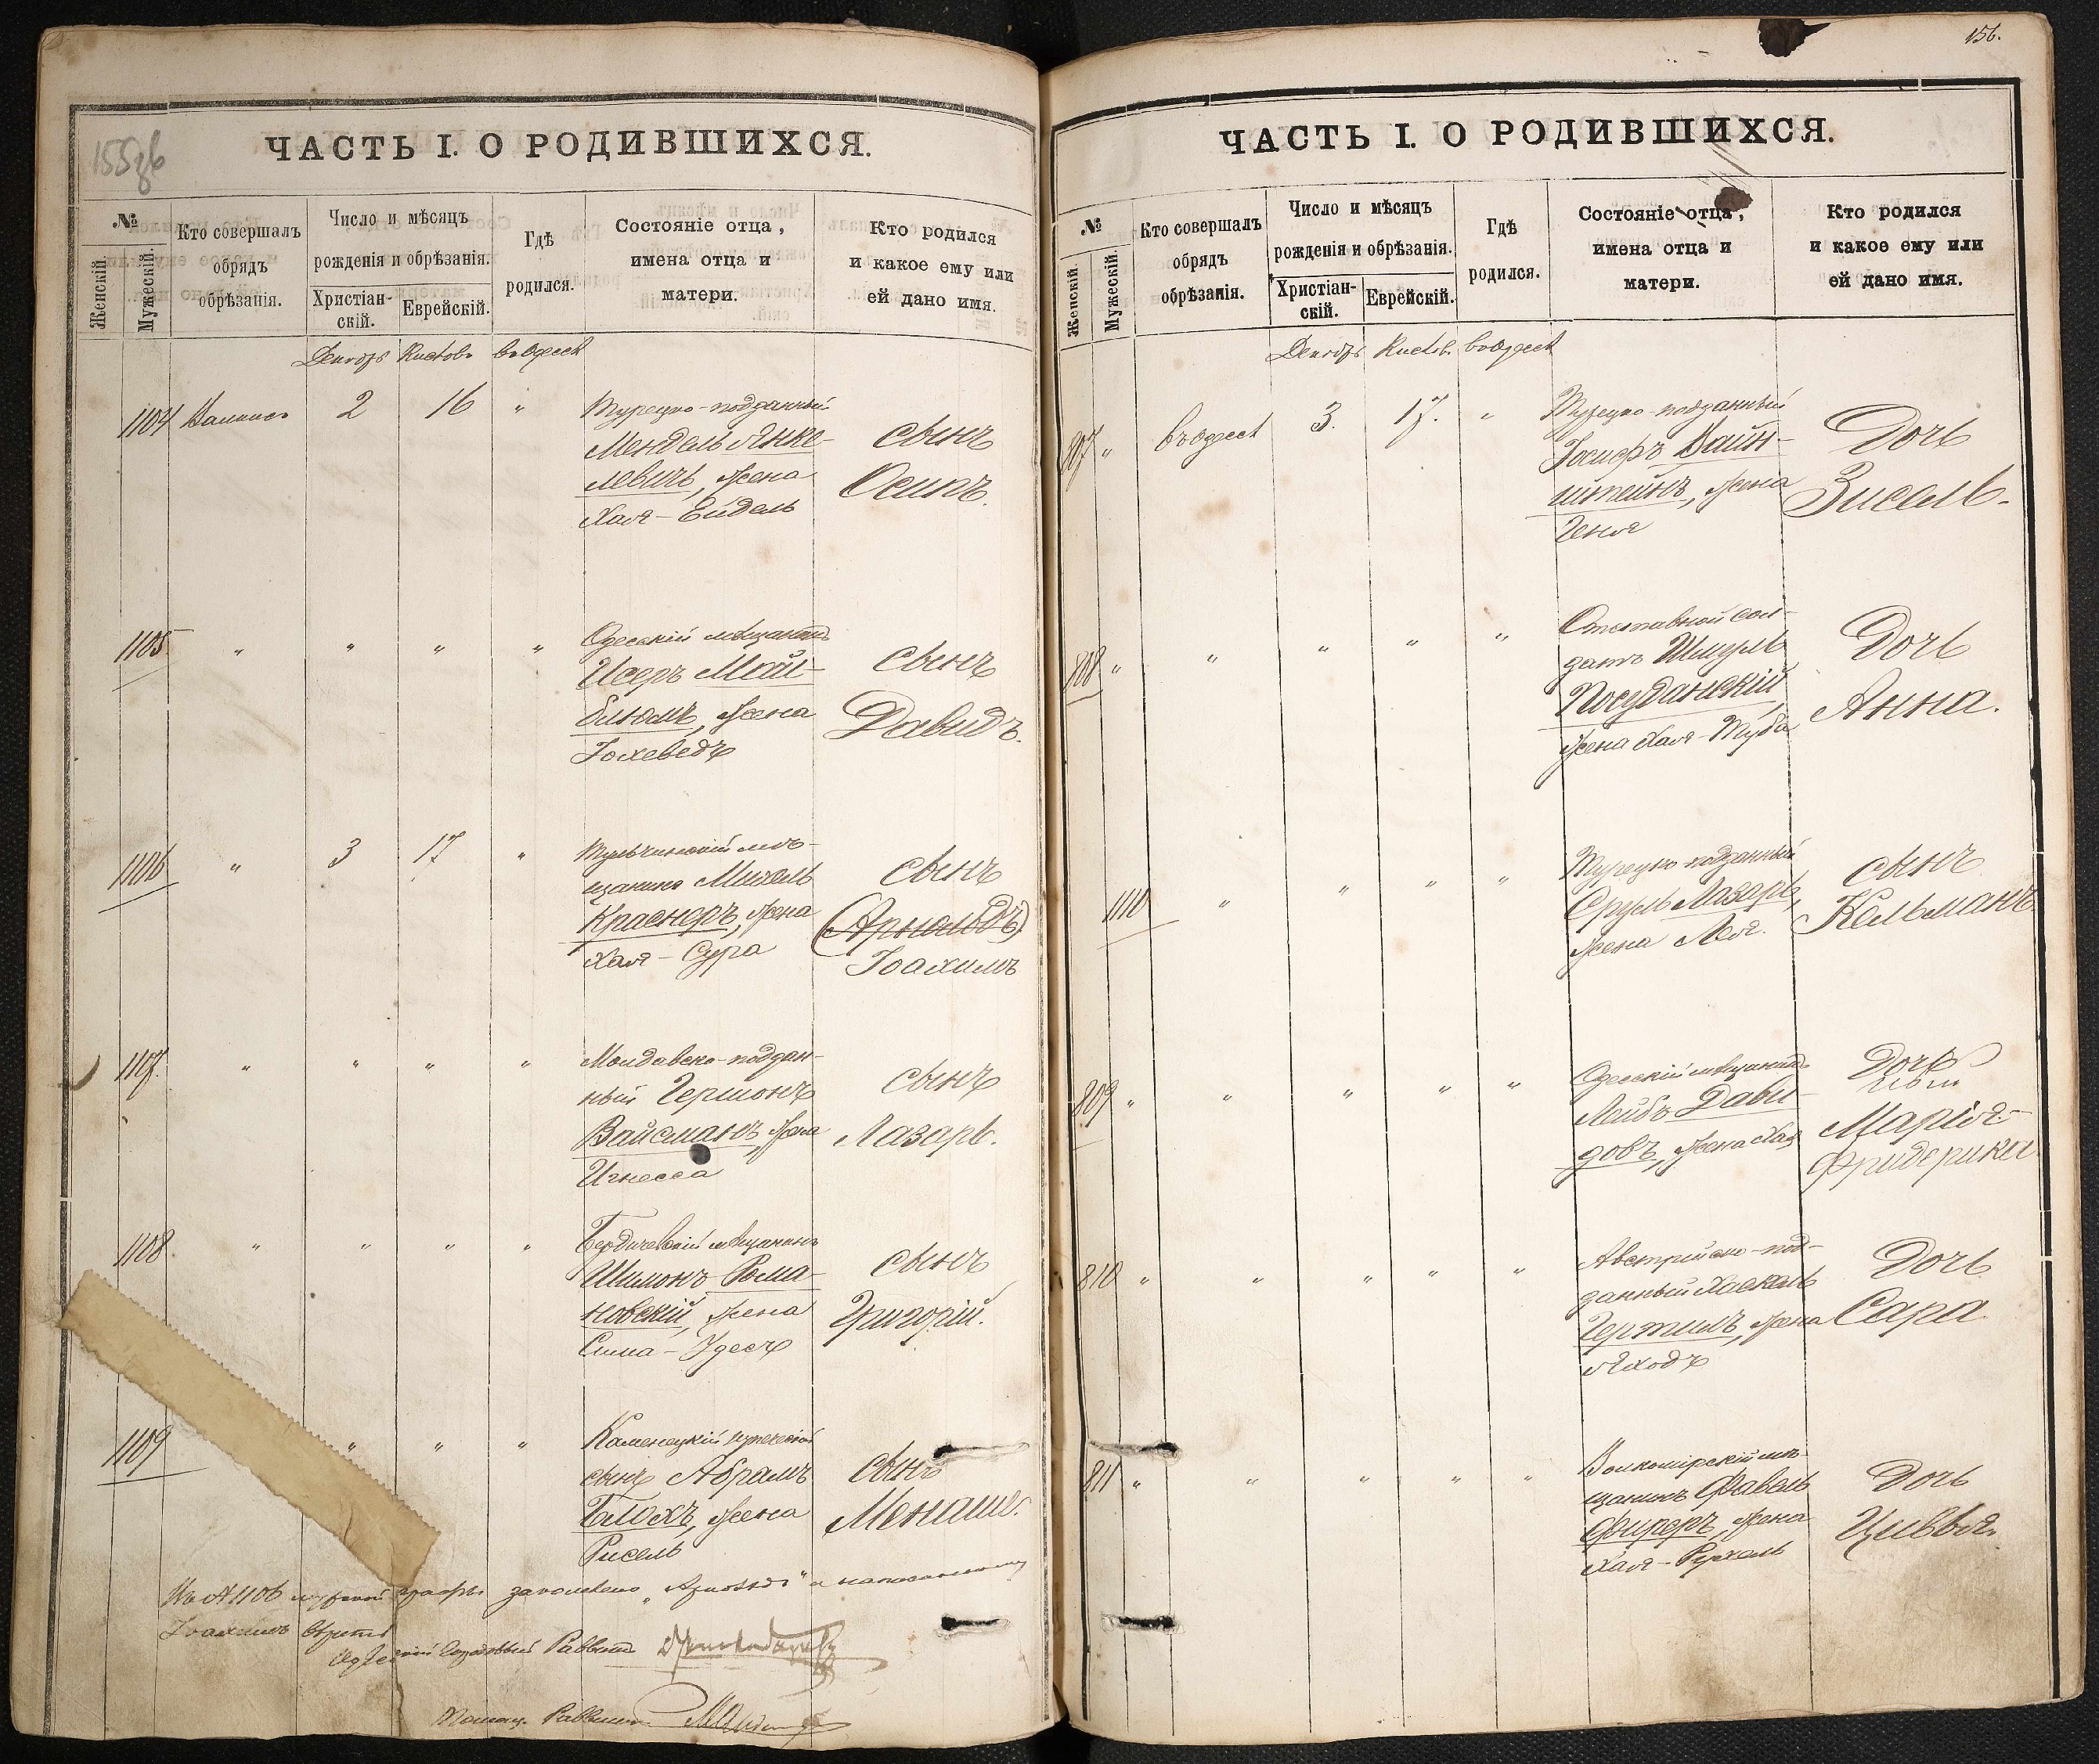 155об
ЧАСТЬ I. О РОДИВШИХСЯ.
№
Женскій.
Мужескій.
Кто совершалъ
обрядъ
обрѣзанія.
Число и мѣсяцъ
рожденія и обрѣзанія.
Христіан-
скій.
Еврейскій.
Гдѣ
родился.
Состояніе отца,
имена отца и
матери.
Кто родился
и какое ему или
ей дано имя.
Декабрь Кислевъ въ Одессѣ
1104 2 16 "
Турецко-подданный
Мендель Янке-
левичъ, жена
Хая-Ейдель
сынъ
Осипъ.
1105 " " " "
Одесскій мѣщанинъ
Исеръ Май-
блюмъ, жена
Іохеведъ
сынъ
Давидъ.
1106 " 3 17 "
Тульчинскій мѣ-
щанинъ Михель
Краснеръ, жена
Хая-Сура
сынъ
(Арнольдъ)
Іоахимъ
1107 " " " "
Молдавско-поддан-
ный Гершонъ
Вайсманъ, жена
Игнесса
сынъ
Лазарь.
1108 " " " "
Бердичевскій мѣщанинъ
Шимонъ Рома-
новскій, жена
Сима-Удесъ
сынъ
Григорій.
1109 " " "
Каменецкій купеческій
сынъ Абрамъ
Блохъ, жена
Рисель
сынъ
Менаше.
Въ № 1106 графѣ "Арнольдъ" а написанному
Іоахимъ вѣрить
Одесскій Городовый Раввинъ
Помощ. Раввина
156.
ЧАСТЬ I. О РОДИВШИХСЯ.
№
Женскій.
Мужескій.
Кто совершалъ
обрядъ
обрѣзанія.
Число и мѣсяцъ
рожденія и обрѣзанія.
Христіан-
скій.
Еврейскій.
Гдѣ
родился.
Состояніе отца,
имена отца и
матери.
Кто родился
и какое ему или
ей дано имя.
Декабрь Кислев. въ Одессѣ
807 " въ Одессѣ 3. 17. "
Турецко-подданный
Іосифъ Вайн-
штейнъ, жена
Геня
Дочь
Зисель.
808 " " " " "
Отставной сол-
датъ Шмуль
Посуданскій,
жена Хая-Туба
Дочь
Анна.
1110 " " " "
Турецко-подданный
Сруль Лазарь,
жена Лея.
сынъ
Кельманъ.
809 " " " " "
Одесскій мѣщанинъ
Лейбъ Дави-
довъ, жена Хая
Дочь
Марія-
Фридерика
810 " " " " "
Австрійско-под-
данный Хаскель
Гертилъ, жена
Яходъ
Дочь
Сара
811 " " " " "
Волкомірскій мѣ-
щанинъ Фавель
Фиреръ, жена
Хая-Рухель
Дочь
Цивья.